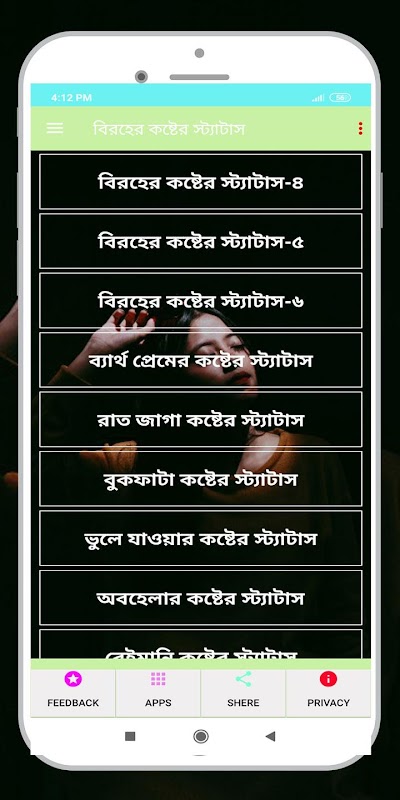 4:12 PM
56
বিরহের কষ্টের স্ট্যাটাস
বিরহের কষ্টের স্ট্যাটাস-৪
বিরহের কষ্টের স্ট্যাটাস-৫
বিরহের কষ্টের স্ট্যাটাস-৬
ব্যার্থ প্রেমের কষ্টের স্ট্যাটাস
রাত জাগা কষ্টের স্ট্যাটাস
বুকফাটা কষ্টের স্ট্যাটাস
ভুলে যাওয়ার কষ্টের স্ট্যাটাস
অবহেলার কষ্টের স্ট্যাটাস
বেইমানি কষ্টের স্ট্যাটাস
FEEDBACK
APPS
SHERE
PRIVACY